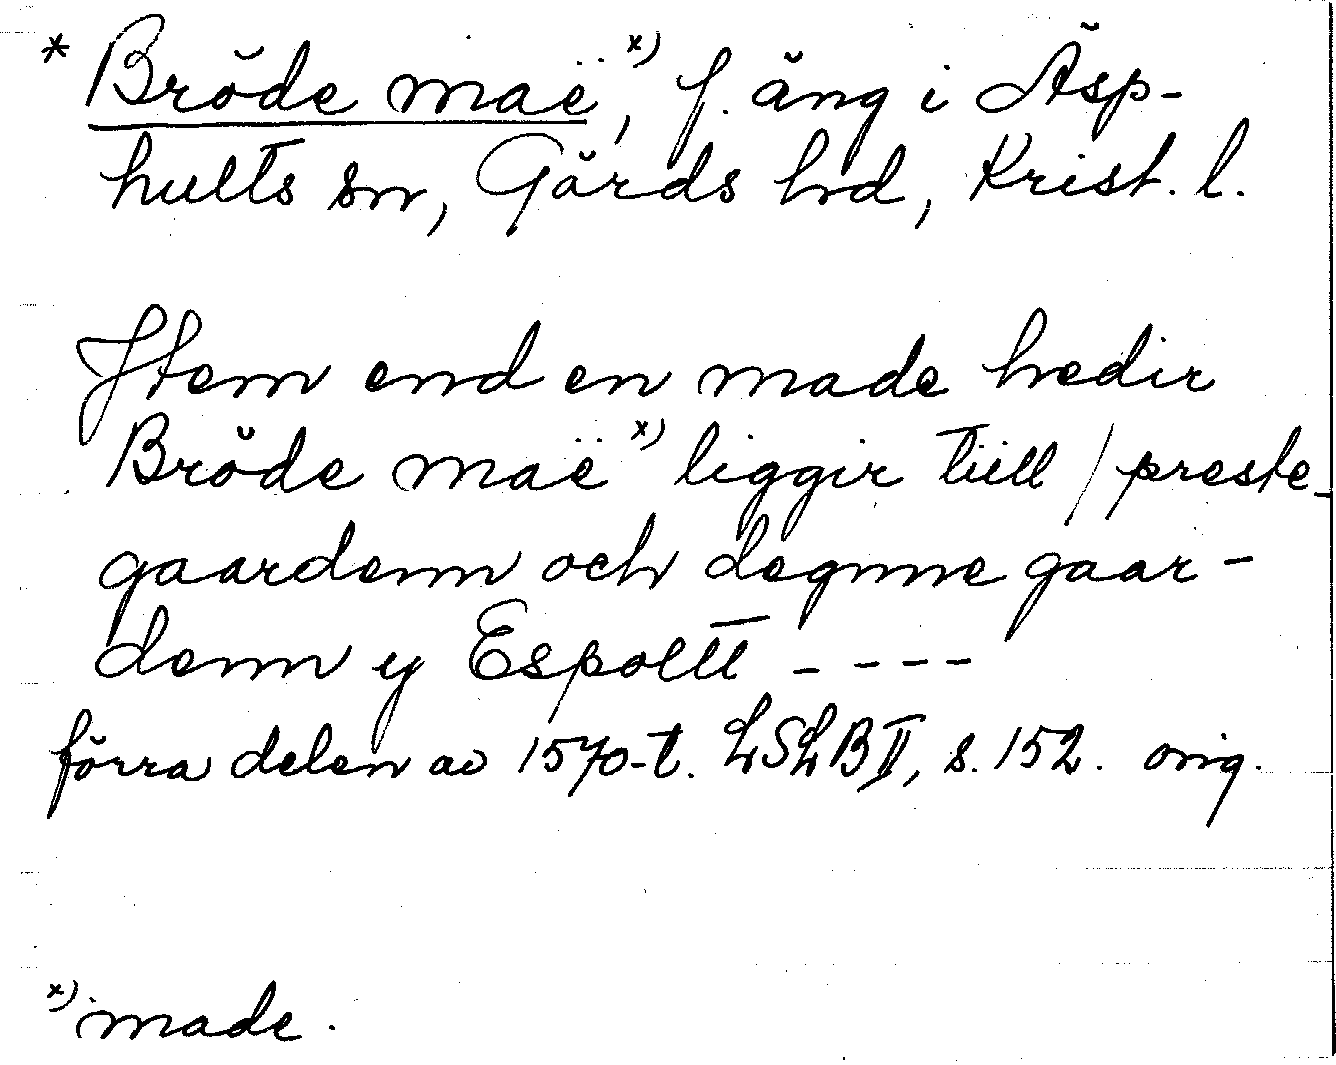 * Brŏde maë x), f. äng i Äsp-
hults sn, Gärds hd, Krist. l.
Jtem end en made hedir
Brŏde maë x) liggir tiill / preste-
gaardenn och degnne gaar-
denn y Espoltt - - - -
förra delen av 1570-t. LSLB II, s. 152. orig.
x) made.